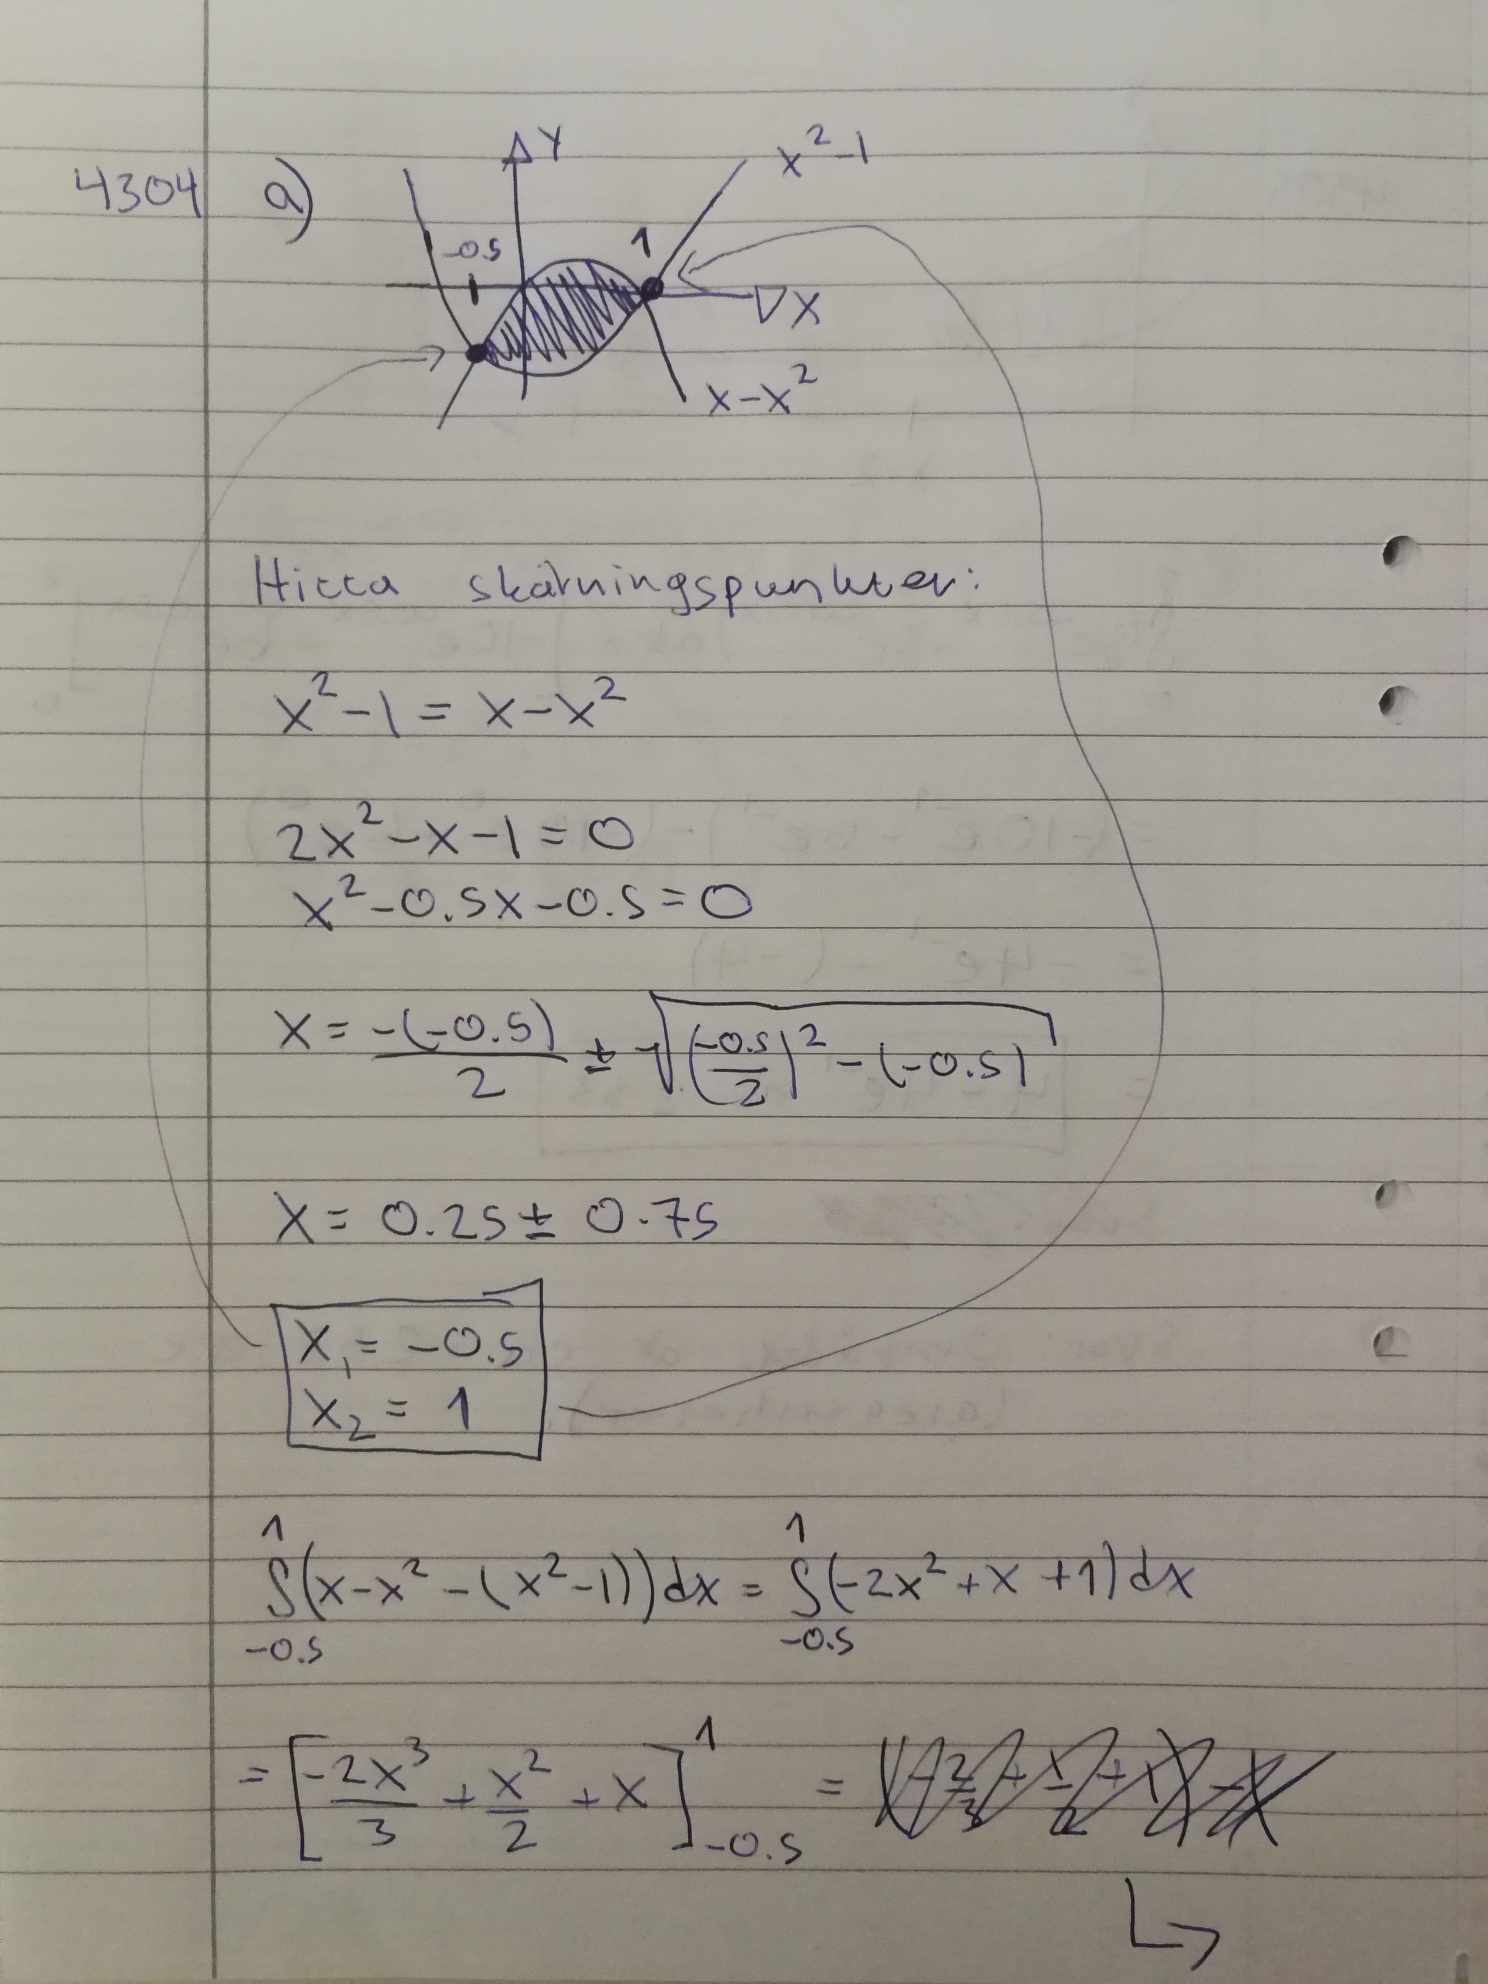 4304 a)
Y
x²-1
-0.5
1
X
x-x²
Hitta skärningspunkter:
x²-1 = x-x²
2x²-x-1=0
x²-0.5x-0.5=0
x = -(-0.5)/2 ± √((-0.5/2)² - (-0.5))
x = 0.25 ± 0.75
x₁ = -0.5
x₂ = 1
∫_{-0.5}^{1} (x-x²-(x²-1))dx = ∫_{-0.5}^{1} (-2x²+x+1)dx
= [-2x³/3 + x²/2 + x]_{-0.5}^{1} =